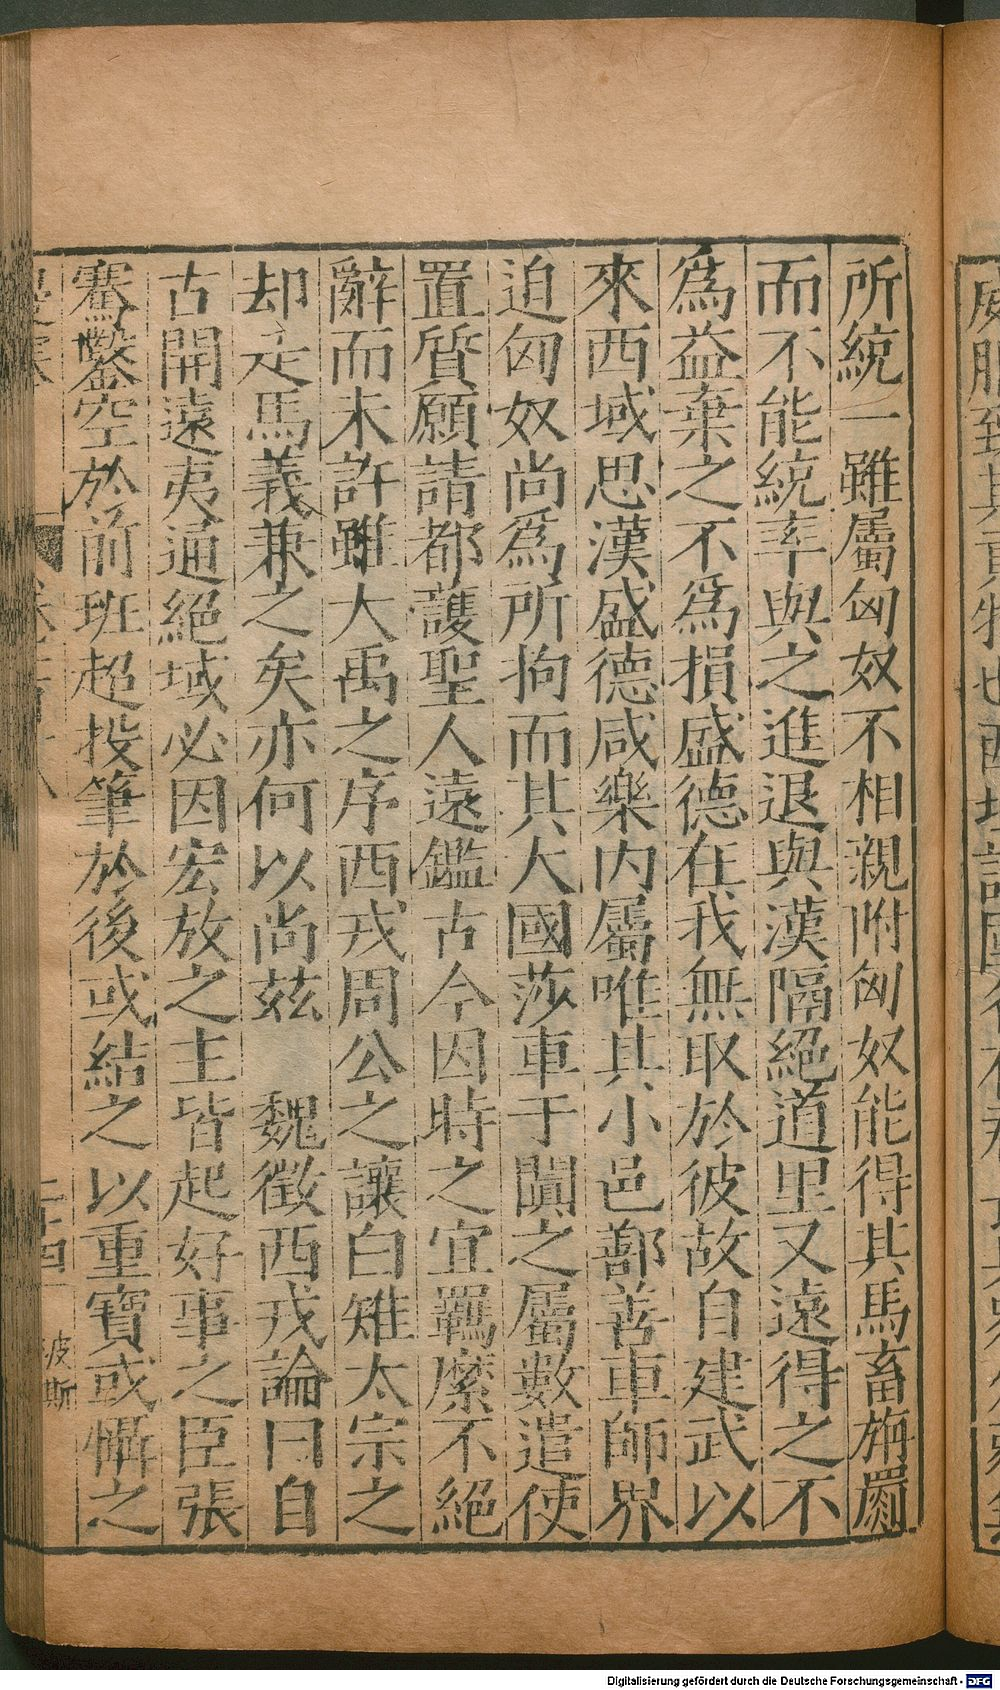 所統一雖屬匈奴不相親附匈奴能得其馬畜旃罽
而不能統率與之進退與漢隔絕道里又遠得之不
爲益棄之不爲損盛德在我無取於彼故自建武以
來西域思漢盛德咸樂内屬唯其小邑鄯善車師界
迫匈奴尚爲所拘而其大國莎車于闐之屬數遣使
置質願請都護聖人遠鑑古今因時之宜羈縻不絕
辭而未許雖大禹之序西戎周公之讓白雉太宗之
却走馬義兼之矣亦何以尚茲　魏徵西戎論曰自
古開遠夷通絕域必因宏放之主皆起好事之臣張
騫鑿空於前班超投筆於後或結之以重寶或懾之
二十四
波斯
Digitalisierung gefördert durch die Deutsche Forschungsgemeinschaft - DFG